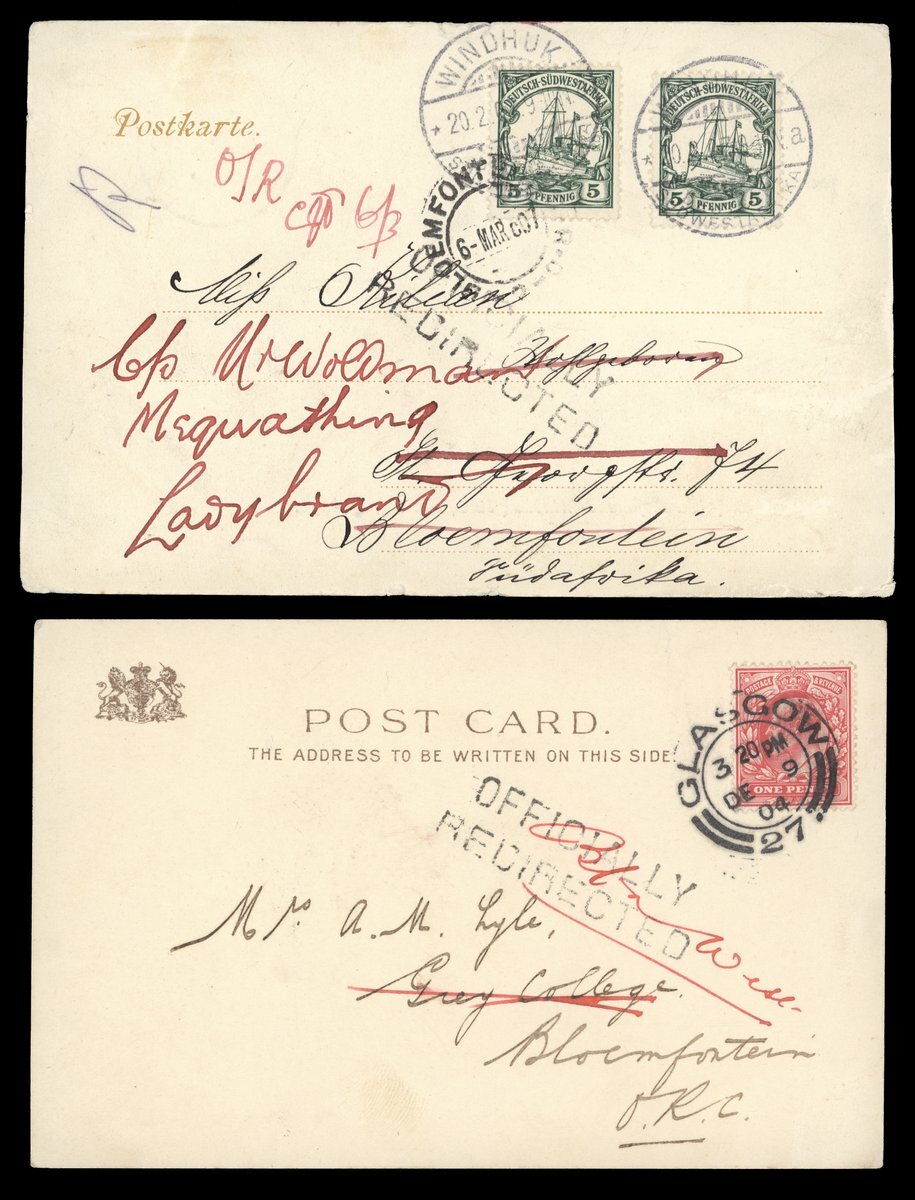 WINDHUK
20.2.
DEUTSCH-SÜDWESTAFRIKA
5 PFENNIG 5
DEUTSCH-SÜDWESTAFRIKA
5 PFENNIG 5
a
Postkarte.
O/R
c/o
6-MAR 07
OFFICIALLY
REDIRECTED
Miss Kilian
c/o Mr Woldman
Wohlgeboren
Mequathing
St. Georgstr. 74
Ladybrand
Bloemfontein
Südafrika.
POST CARD.
THE ADDRESS TO BE WRITTEN ON THIS SIDE
POSTAGE & REVENUE
GLASGOW
3 20 PM
DE 9
04
27
ONE PEN
OFFICIALLY
REDIRECTED
Mrs. A. M. Lyle,
Grey College.
Bloemfontein
O.R.C.